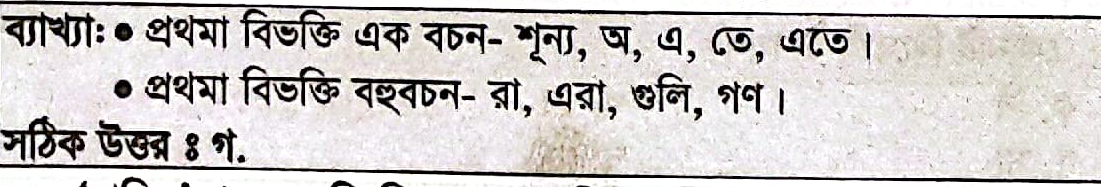 ব্যাখ্যা: ● প্রথমা বিভক্তি এক বচন- শূন্য, অ, এ, তে, এতে।
● প্রথমা বিভক্তি বহুবচন- রা, এরা, গুলি, গণ।
সঠিক উত্তর ঃ গ.